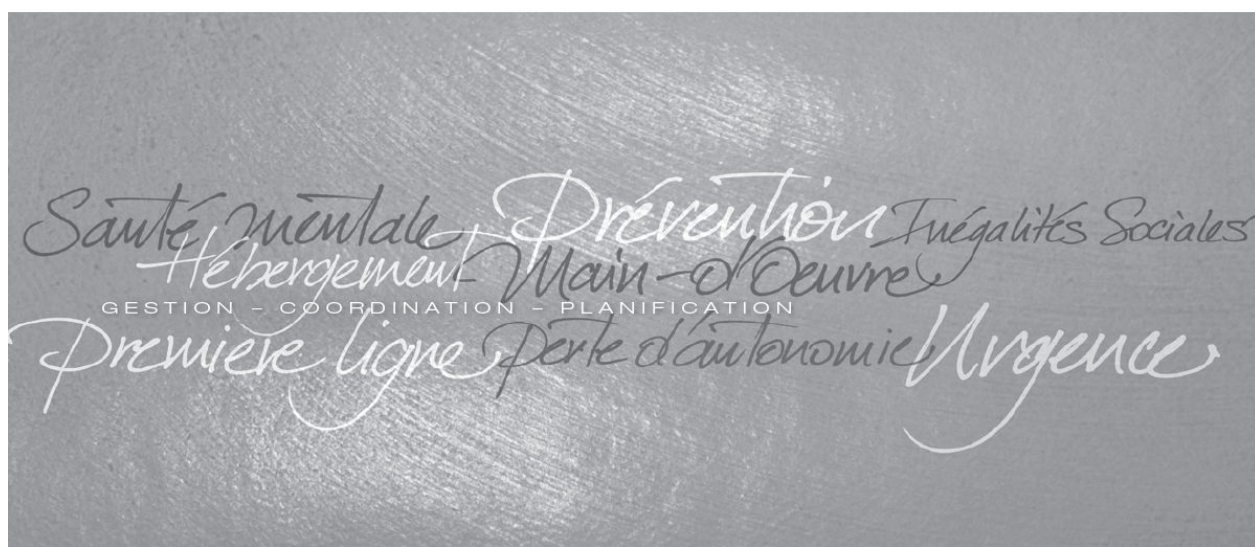 Santé mentale Prévention Inégalités Sociales
Hébergement Main-d'Oeuvre
GESTION – COORDINATION – PLANIFICATION
Première ligne perte d'autonomie Urgence